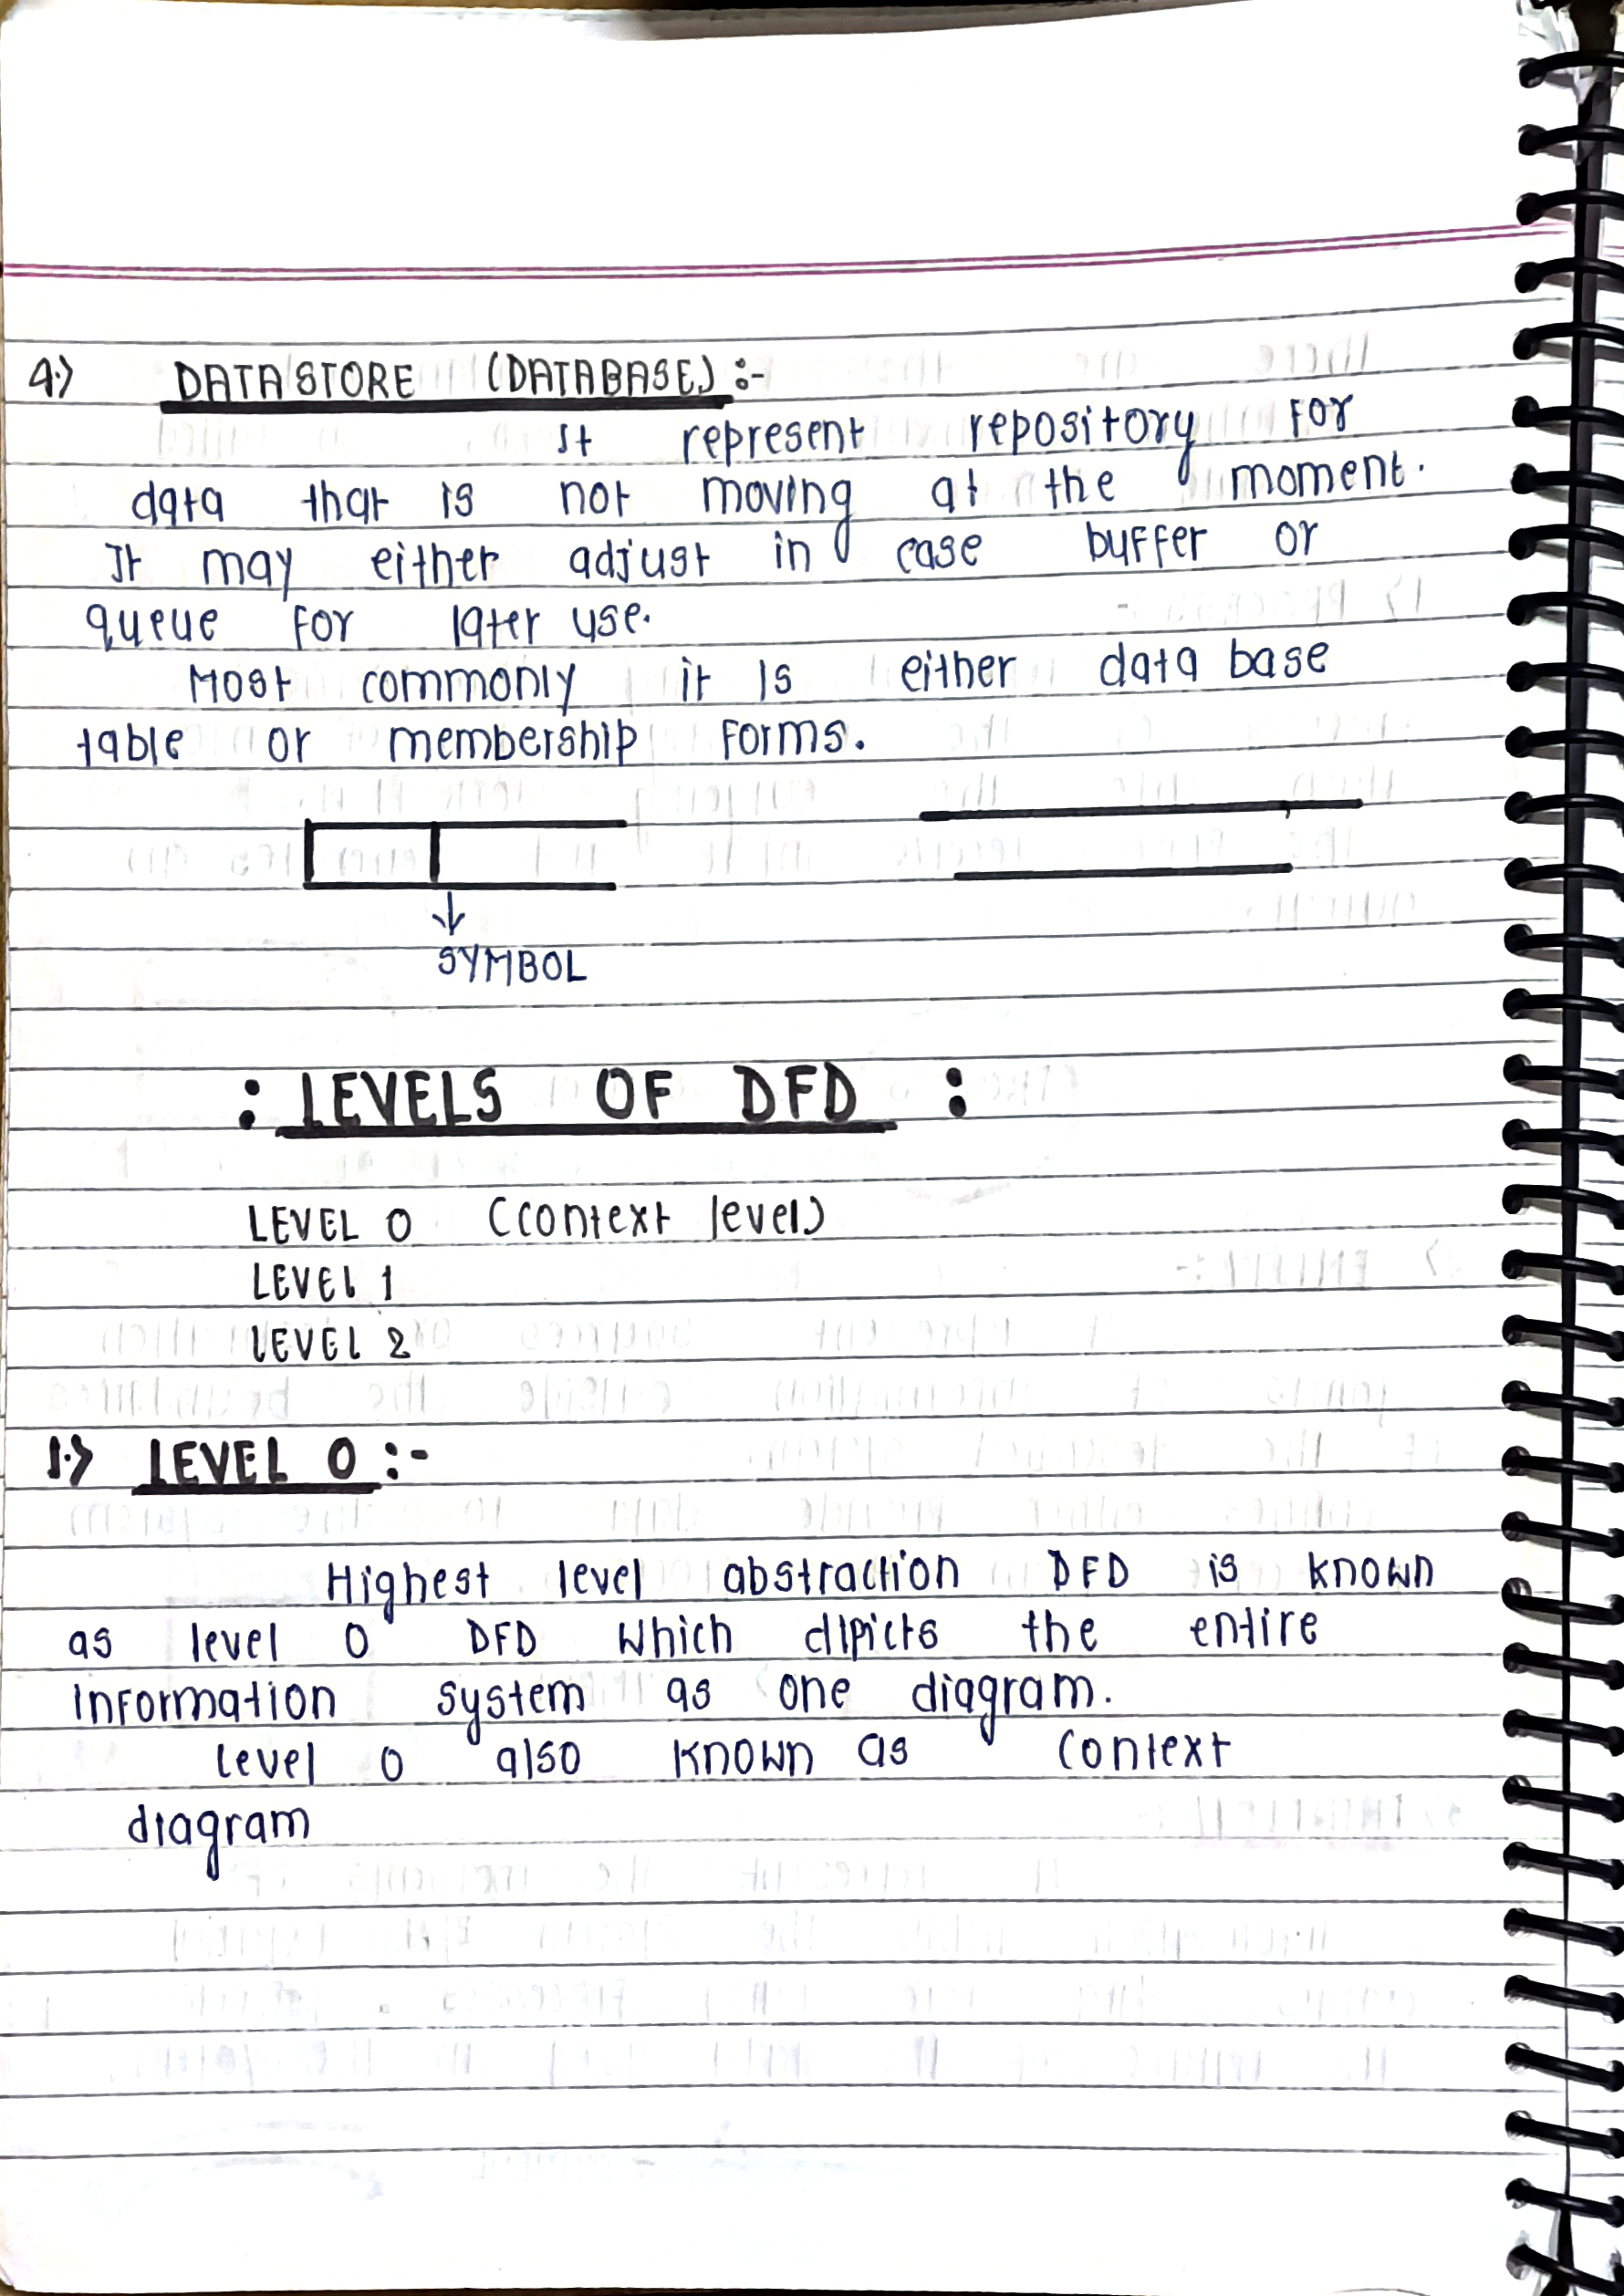 4.> DATA STORE (DATABASE) :-
It represent repository for
data that is not moving at the moment.
It may either adjust in case buffer or
queue for later use.
Most commonly it is either data base
table or membership forms.
SYMBOL
: LEVELS OF DFD :
LEVEL 0 (context level)
LEVEL 1
LEVEL 2
1.> LEVEL 0 :-
Highest level abstraction DFD is known
as level 0 DFD which dipicts the entire
information system as one diagram.
level 0 also known as context
diagram